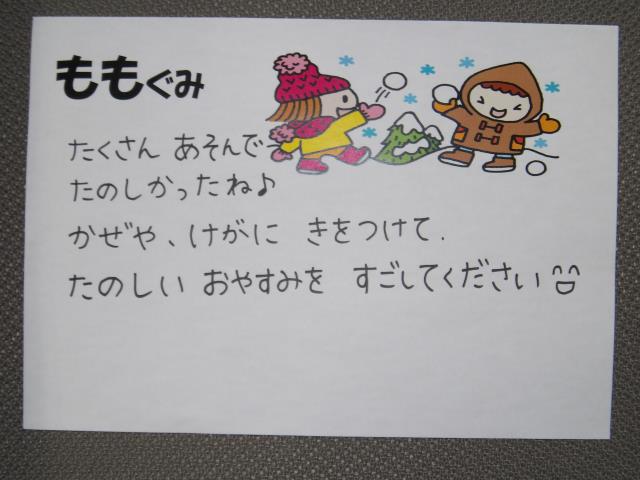 ももぐみ
たくさん あそんで
たのしかったね♪
かぜや、けがに きをつけて.
たのしい おやすみを すごしてください